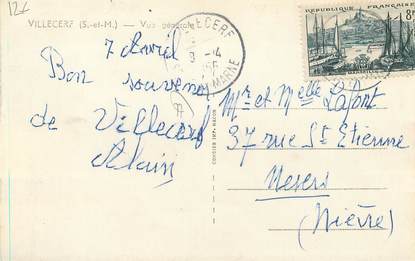 12€
VILLECERF (S.-et-M.) — Vue générale
7 Avril
Bon souvenir
de Villecerf
Alain
VILLECERF
8-14
MARNE
COMBIER IMP. MACON
RÉPUBLIQUE FRANÇAISE
8F
Mr et Melle Lafont
37 rue St Etienne
Nevers
(Nièvre)